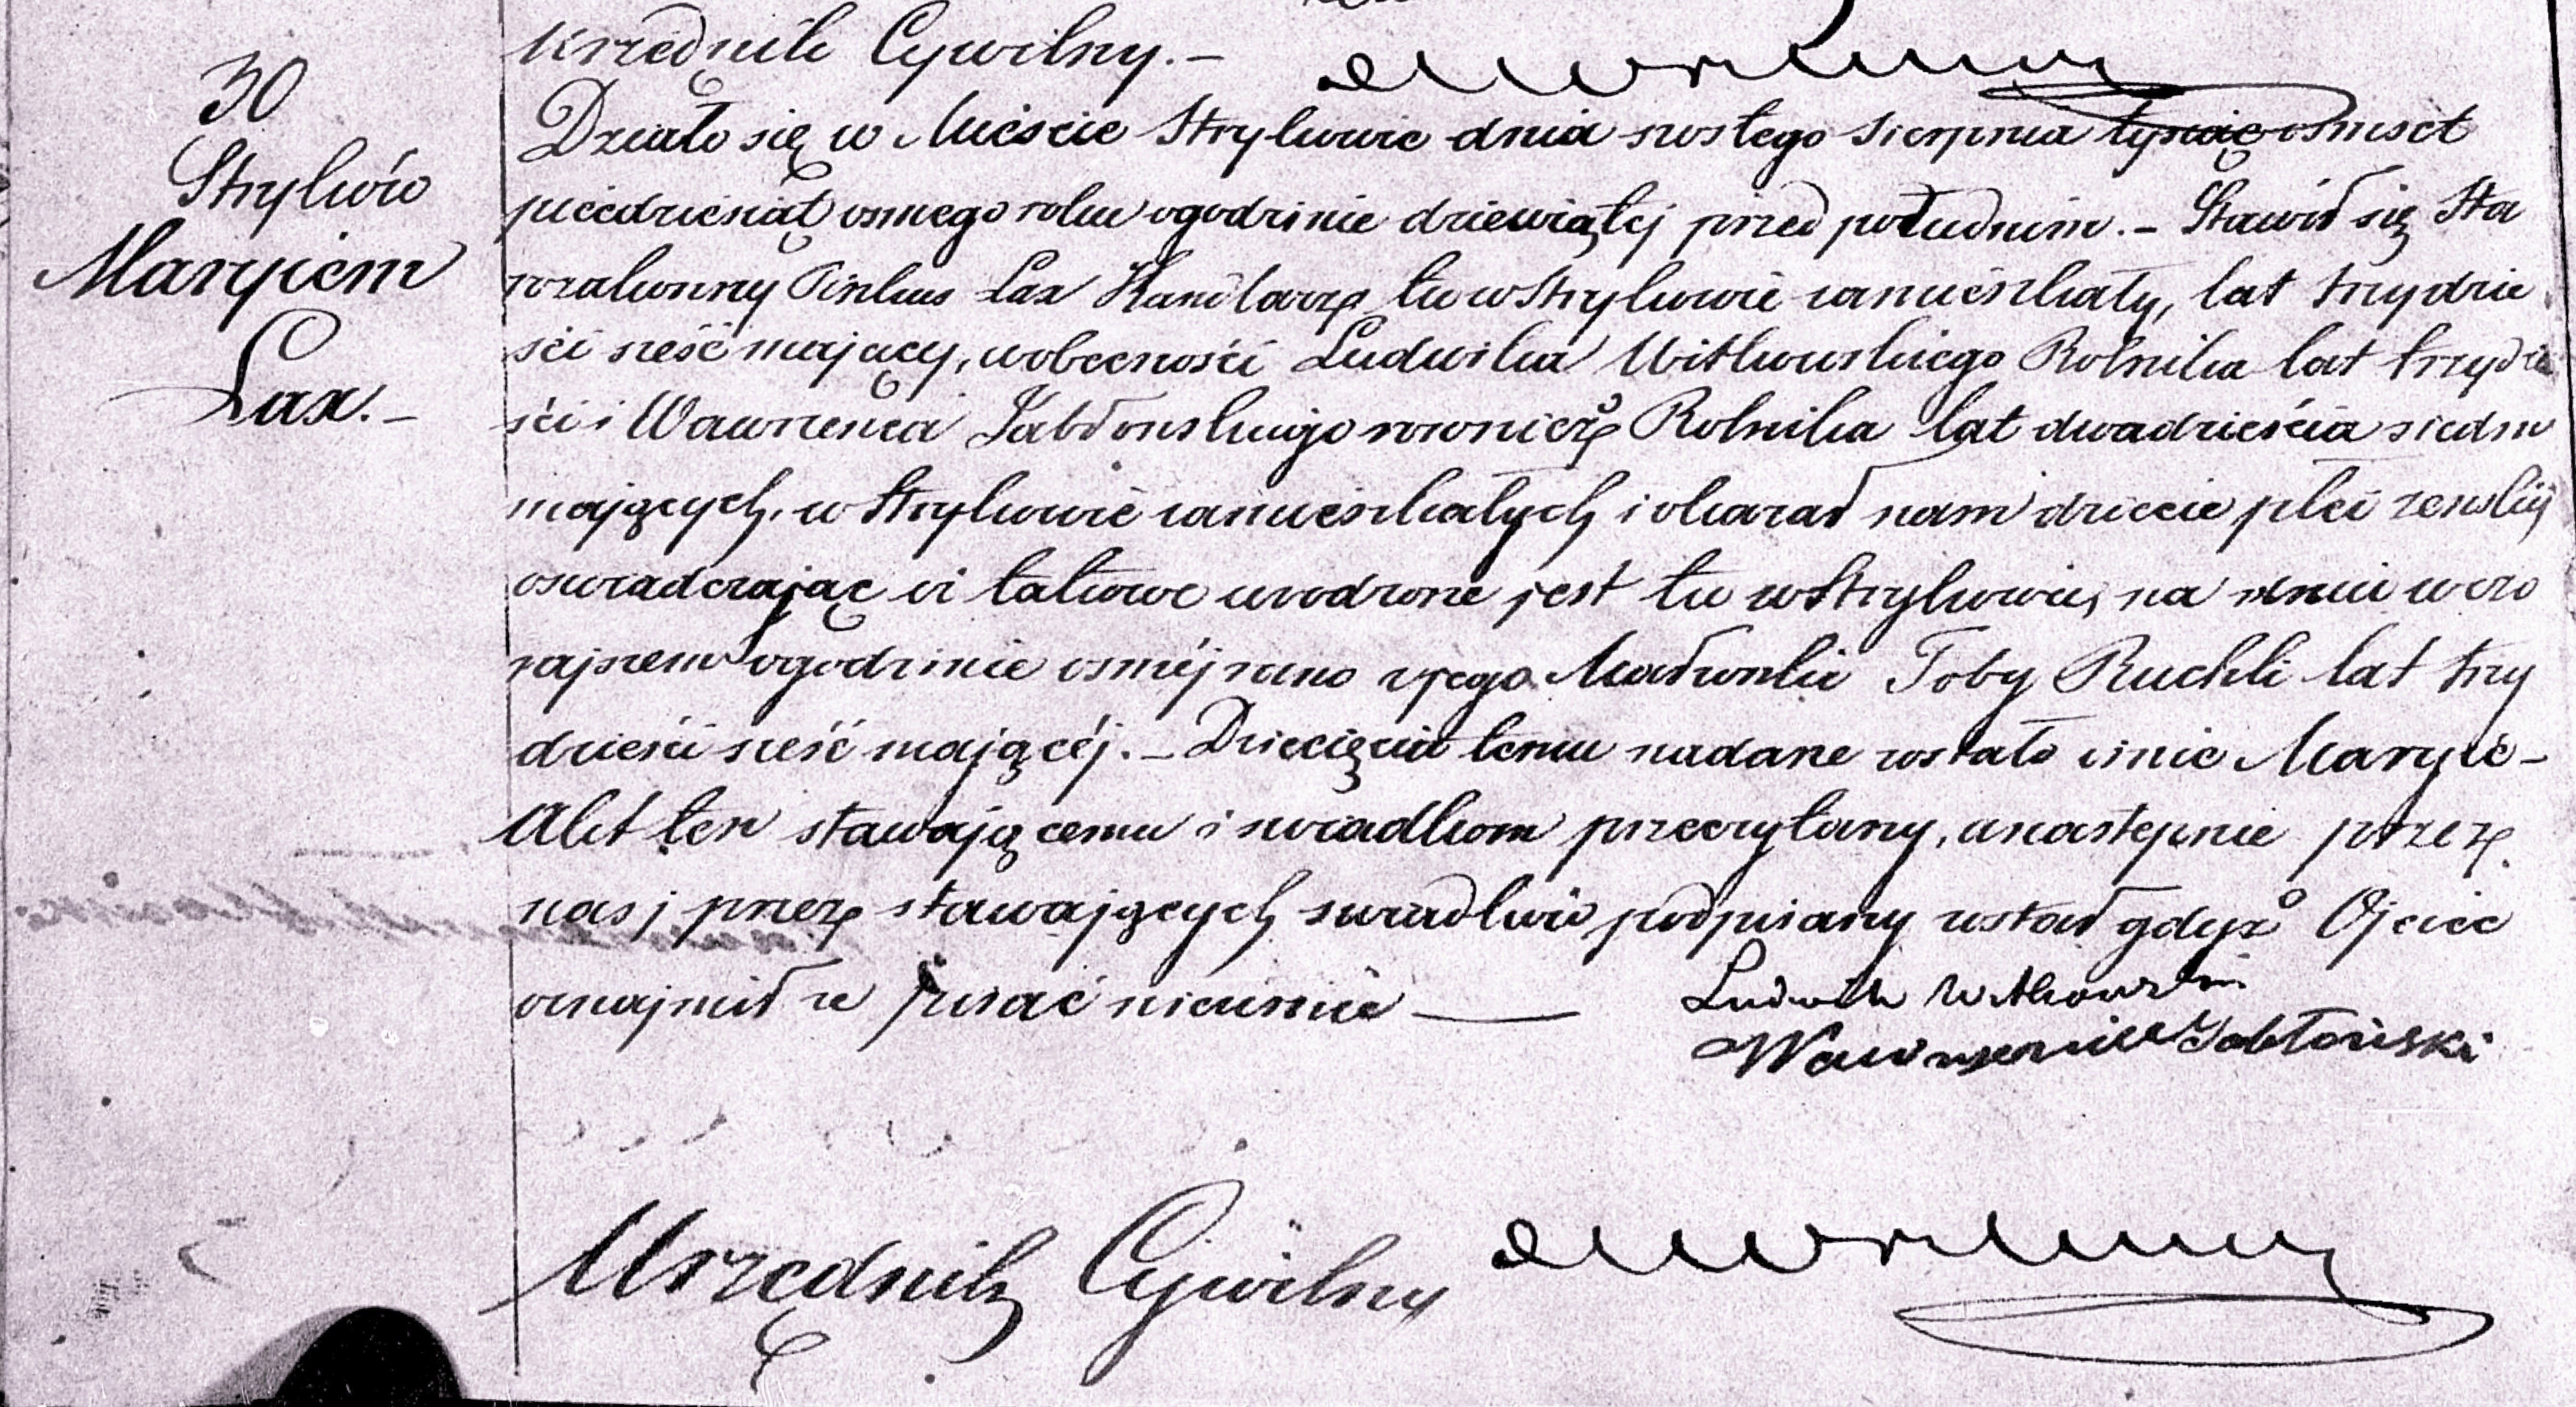 Urzędnik Cywilny. –
30
Stryków
Maryiem
Lax. –
Działo się w Mieście Strykowie dnia szostego Sierpnia tysiąc osmset
pięcdziesiąt osmego roku ogodzinie dziewiątej przed południem. – Stawił się Sta
rozakonny Pinkus Lax Handlarz tu w Strykowie zamieszkały, lat trzydzie
sci sześć mający, wobecności Ludwika Witkowskiego Rolnika lat trzydzie
ści i Wawrzeńca Jabłonskiego rownież Rolnika lat dwadzieścia siedm
mających, w Strykowie zamieszkałych i okazał nam dziecie płci zenskij
oswiadczając iż takowe urodzone jest tu w Strykowie, na dniu wczo
rajszem ogodzinie osméj rano zjego Małzonki Toby Ruchli lat trzy
dzieści sześć mającéj. – Dziecięciu temu nadane zostało imie Maryie –
Akt ten stawającemu i swiadkom przeczytany, anastępnie przez
nas j przez stawających swiadków podpisany został gdyż Ojciec
oznajmił ze pisać nieumie —
Ludwik Witkowski
Wawrzeniec Jabłoński
Urzędnik Cywilny